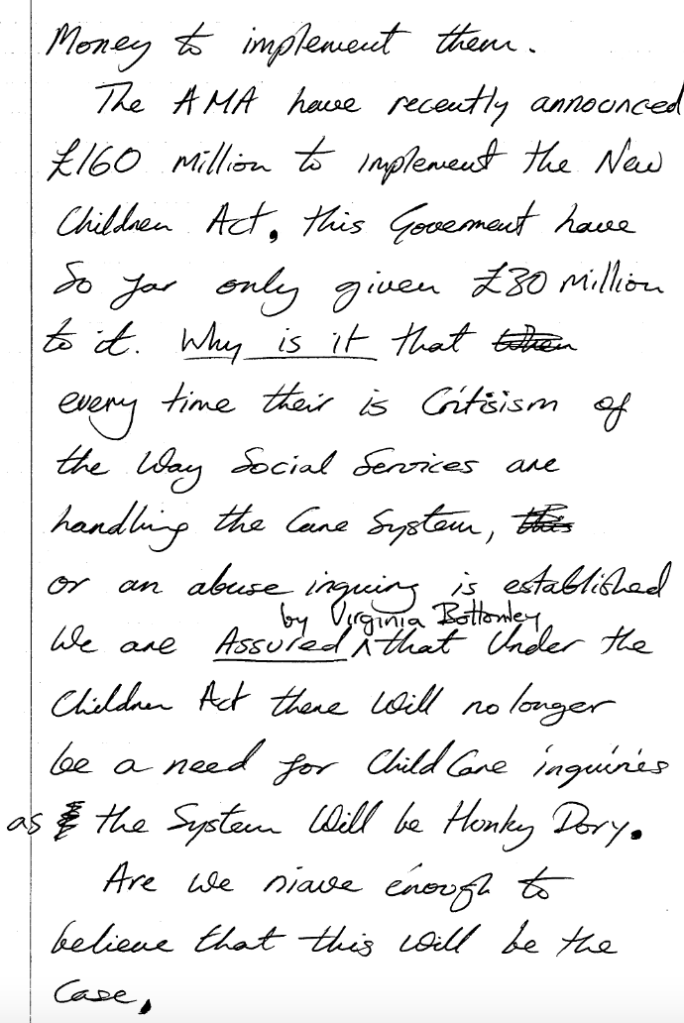 Money to implement them.
The AMA have recently announced
£160 Million to implement the New
Children Act, this Goverment have
So far only given £30 Million
to it. Why is it that when
every time their is Critisism of
the Way Social Services are
handling the Care System, this
or an abuse inquiry is established
by Virginia Bottomley
We are Assured ^ that Under the
Children Act there Will no longer
be a need for Child Care inquiries
as the System Will be Honky Dory.
Are We niave enough to
believe that this will be the
Case,